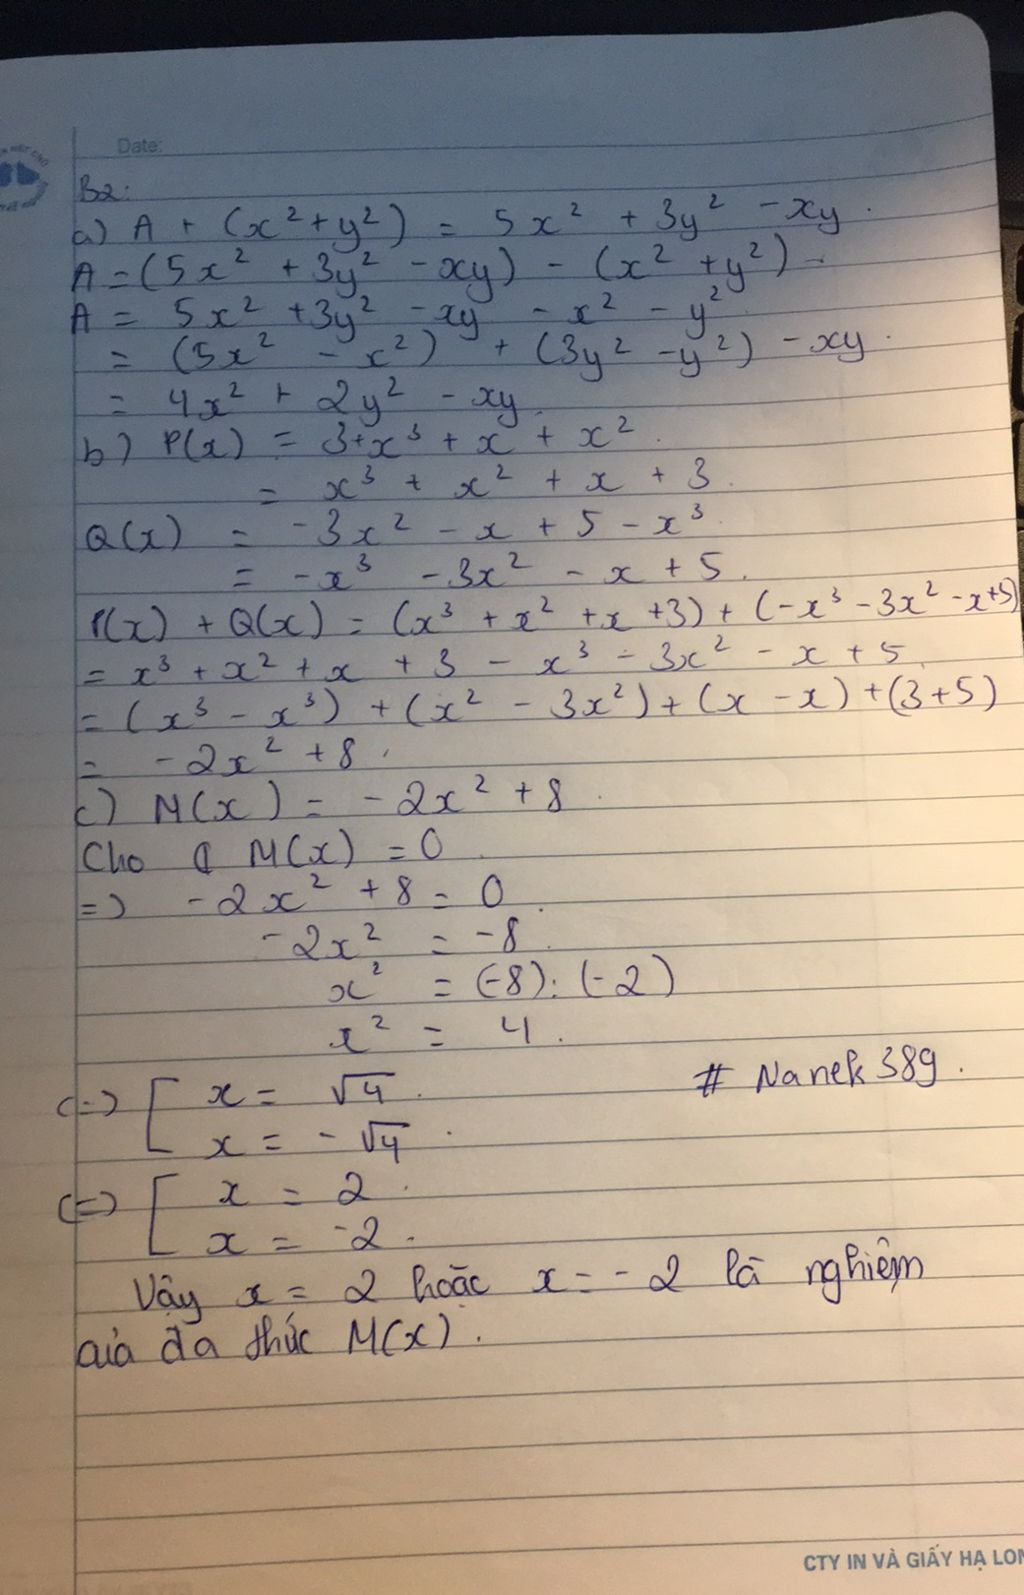 Date:
B2:
a) A + (x² + y²) = 5x² + 3y² - xy.
A = (5x² + 3y² - xy) - (x² + y²).
A = 5x² + 3y² - xy - x² - y²
= (5x² - x²) + (3y² - y²) - xy.
= 4x² + 2y² - xy.
b) P(x) = 3 + x³ + x + x².
= x³ + x² + x + 3.
Q(x) = -3x² - x + 5 - x³.
= -x³ - 3x² - x + 5.
P(x) + Q(x) = (x³ + x² + x + 3) + (-x³ - 3x² - x + 5)
= x³ + x² + x + 3 - x³ - 3x² - x + 5.
= (x³ - x³) + (x² - 3x²) + (x - x) + (3 + 5)
= -2x² + 8.
c) M(x) = -2x² + 8.
Cho M(x) = 0.
=> -2x² + 8 = 0.
-2x² = -8.
x² = (-8) : (-2)
x² = 4.
# Nanek389.
(=) [ x = √4.
x = -√4.
(=) [ x = 2.
x = -2.
Vậy x = 2 hoặc x = -2 là nghiệm
của đa thức M(x).
CTY IN VÀ GIẤY HẠ LON